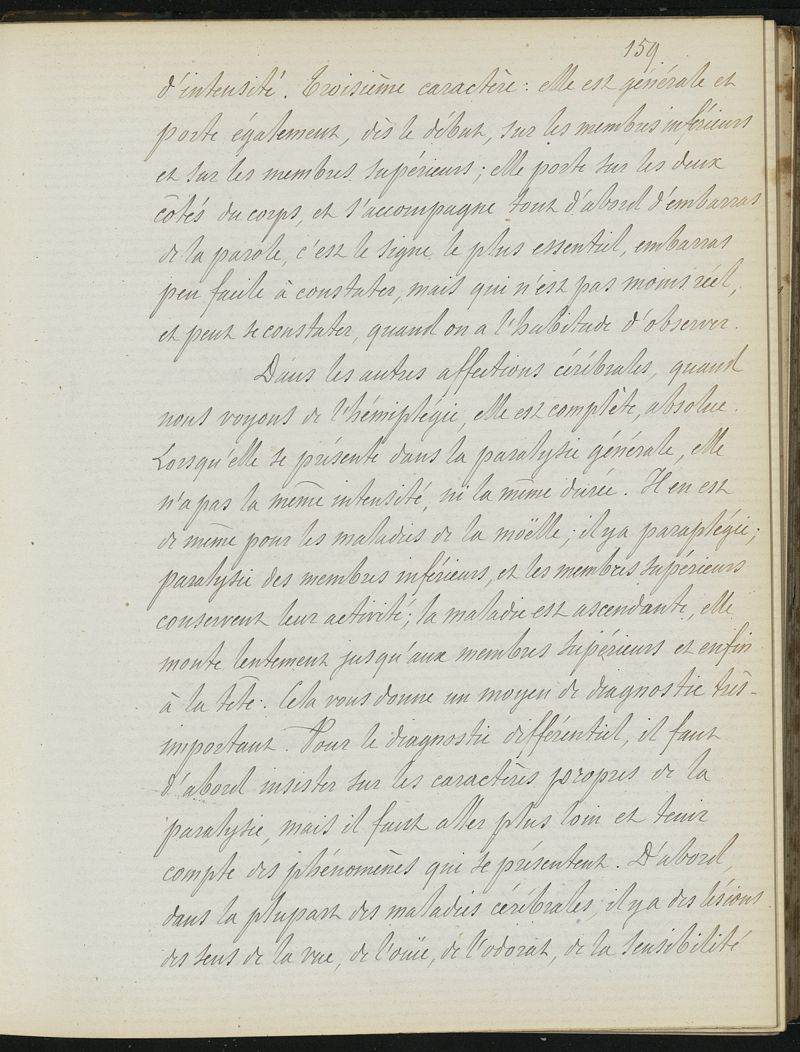 159
d'intensité. Troisième caractère : elle est générale et
porte également, dès le début, sur les membres inférieurs
et sur les membres supérieurs ; elle porte sur les deux
côtés du corps, et s'accompagne tout d'abord d'embarras
de la parole, c'est le signe le plus essentiel, embarras
peu facile à constater, mais qui n'est pas moins réel,
et peut se constater, quand on a l'habitude d'observer.
Dans les autres affections cérébrales, quand
nous voyons de l'hémiplégie, elle est complète, absolue.
Lorsqu'elle se présente dans la paralysie générale, elle
n'a pas la même intensité, ni la même durée. Il en est
de même pour les maladies de la moëlle ; il y a paraplégie ;
paralysie des membres inférieurs, et les membres supérieurs
conservent leur activité ; la maladie est ascendante, elle
monte lentement jusqu'aux membres supérieurs et enfin
à la tête. Cela vous donne un moyen de diagnostic très-
important. Pour le diagnostic différentiel, il faut
d'abord insister sur les caractères propres de la
paralysie, mais il faut aller plus loin et tenir
compte des phénomènes qui se présentent. D'abord,
dans la plupart des maladies cérébrales, il y a des lésions
des sens de la vue, de l'ouïe, de l'odorat, de la sensibilité